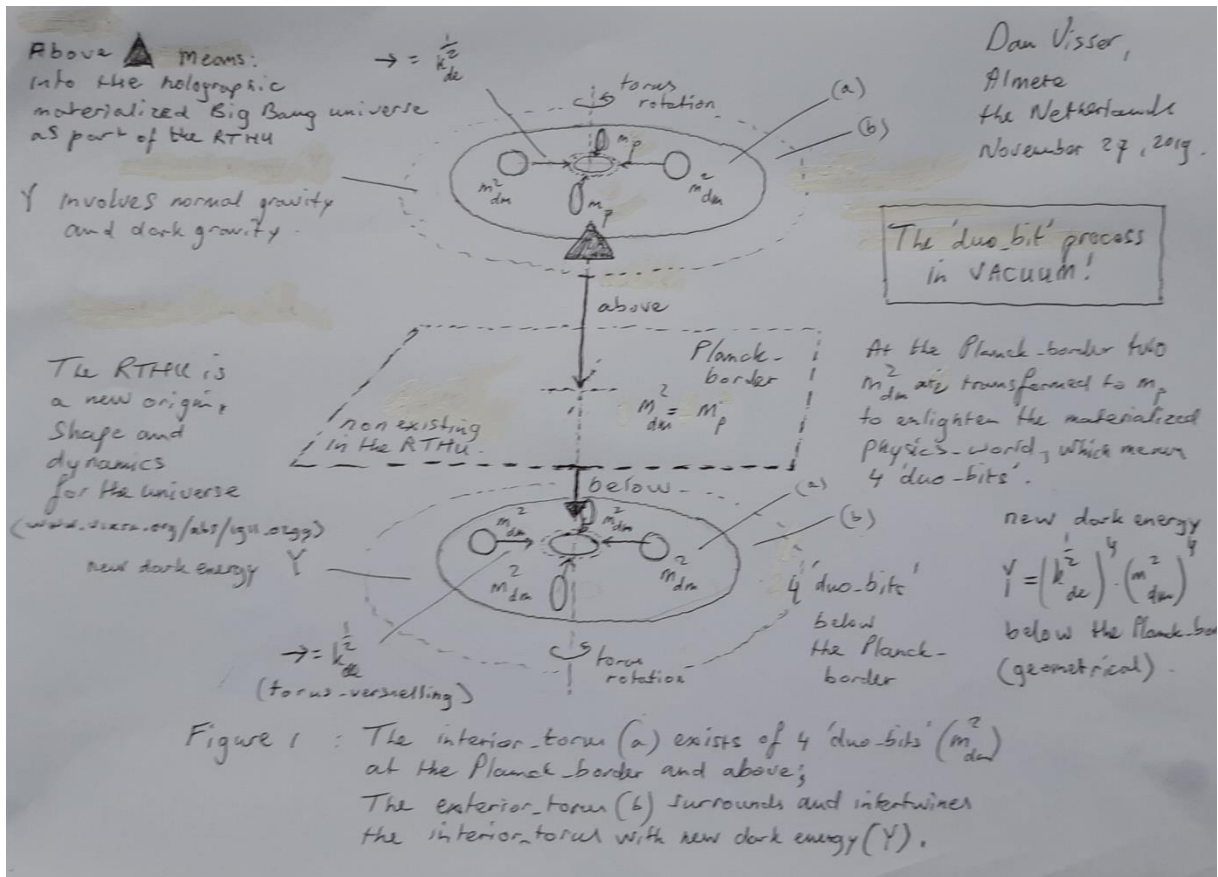 Above ▲ means:
into the holographic
materialized Big Bang universe
as part of the RTHU
→ = k_de^{1/2}
torus
rotation
(a)
(b)
Dan Visser,
Almere
the Netherlands
November 27, 2019.
m_dm^2
m_p
m_dm^2
m_p
Y involves normal gravity
and dark gravity.
The 'duo_bit' process
in VACUUM!
above
Planck-
border
m_dm^2 = m_p
non existing
in the RTHU.
At the Planck_border two
m_dm^2 are transformed to m_p
to enlighten the materialized
physics_world, which means
4 'duo_bits'.
The RTHU is
a new origin,
shape and
dynamics
for the universe
new dark energy Y
below
(a)
(b)
m_dm^2
m_dm^2
m_dm^2
m_dm^2
4 'duo_bits'
below
the Planck-
border
new dark energy
Y = (k_de^{1/2})^4 . (m_dm^2)^4
below the Planck_bor
(geometrical).
→ = k_de^{1/2}
(torus-versnelling)
torus
rotation
Figure 1 : The interior_torus (a) exists of 4 'duo_bits' (m_dm^2)
at the Planck_border and above;
The exterior_torus (b) surrounds and intertwines
the interior_torus with new dark energy (Y).